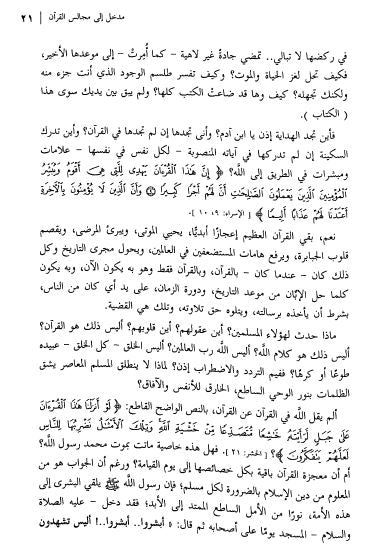 مدخل إلى مجالس القرآن ٢١
في ركضها لا تبالي.. تمضي جادة غير لاهية – كما أُمِرتْ – إلى موعدها الأخير،
فكيف تحل لغز الحياة والموت؟ وكيف تفسر طلسم الوجود الذي أنت جزء منه
ولكنك تجهله؟ كيف وها قد ضاعتْ الكتب كلها؟ ولم يبق بين يديك سوى هذا
( الكتاب ).
فأين تجد الهداية إذن يا ابن آدم؟ وأنى تجدها إن لم تجدها في القرآن؟ وأين تدرك
السكينة إن لم تدركها في آياته المنصوبة – لكل نفس في نفسها – علامات
ومبشرات في الطريق إلى الله؟ ﴿ إِنَّ هَٰذَا ٱلْقُرْءَانَ يَهْدِى لِلَّتِى هِىَ أَقْوَمُ وَيُبَشِّرُ
ٱلْمُؤْمِنِينَ ٱلَّذِينَ يَعْمَلُونَ ٱلصَّٰلِحَٰتِ أَنَّ لَهُمْ أَجْرًا كَبِيرًا ۝ وَأَنَّ ٱلَّذِينَ لَا يُؤْمِنُونَ بِٱلْءَاخِرَةِ
أَعْتَدْنَا لَهُمْ عَذَابًا أَلِيمًا ﴾ [ الإسراء: ٩، ١٠ ].
نعم، بقي القرآن العظيم إعجازًا أبديًّا، يحيي الموتى، ويبرئ المرضى، ويقصم
قلوب الجبابرة، ويرفع هامات المستضعفين في العالمين، ويحول مجرى التاريخ وكل
ذلك كان – عندما كان – بالقرآن، وبالقرآن فقط وهو به يكون الآن، وبه يكون
كلما حل الإبَّان من موعد التاريخ، ودورة الزمان، على يد أي كان من الناس،
بشرط أن يأخذه برسالته، ويتلوه حق تلاوته، وتلك هي القضية.
ماذا حدث لهؤلاء المسلمين؟ أين عقولهم؟ أين قلوبهم؟ أليس ذلك هو القرآن؟
أليس ذلك هو كلام الله؟ أليس الله رب العالمين؟ أليس الخلق – كل الخلق – عبيده
طوعًا أو كرهًا؟ ففيم التردد والاضطراب إذن؟ لماذا لا ينطلق المسلم المعاصر يشق
الظلمات بنور الوحي الساطع، الخارق للأنفس والآفاق؟
ألم يقل الله في القرآن عن القرآن، بالنص الواضح القاطع: ﴿ لَوْ أَنزَلْنَا هَٰذَا ٱلْقُرْءَانَ
عَلَىٰ جَبَلٍ لَّرَأَيْتَهُۥ خَٰشِعًا مُّتَصَدِّعًا مِّنْ خَشْيَةِ ٱللَّهِ وَتِلْكَ ٱلْأَمْثَٰلُ نَضْرِبُهَا لِلنَّاسِ
لَعَلَّهُمْ يَتَفَكَّرُونَ ﴾ [ الحشر: ٢١ ]. فهل هذه خاصية ماتت بموت محمد رسول الله؟
أم أن معجزة القرآن باقية بكل خصائصها إلى يوم القيامة؟ ورغم أن الجواب هو من
المعلوم من دين الإسلام بالضرورة لكل مسلم؛ فإن رسول الله ﷺ يلقي البشرى إلى
هذه الأمة، نورًا من الأمل الساطع الممتد إلى الأبد؛ فقد دخل – عليه الصلاة
والسلام – المسجد يومًا على أصحابه ثم قال: « أبشروا.. أبشروا..! أليس تشهدون